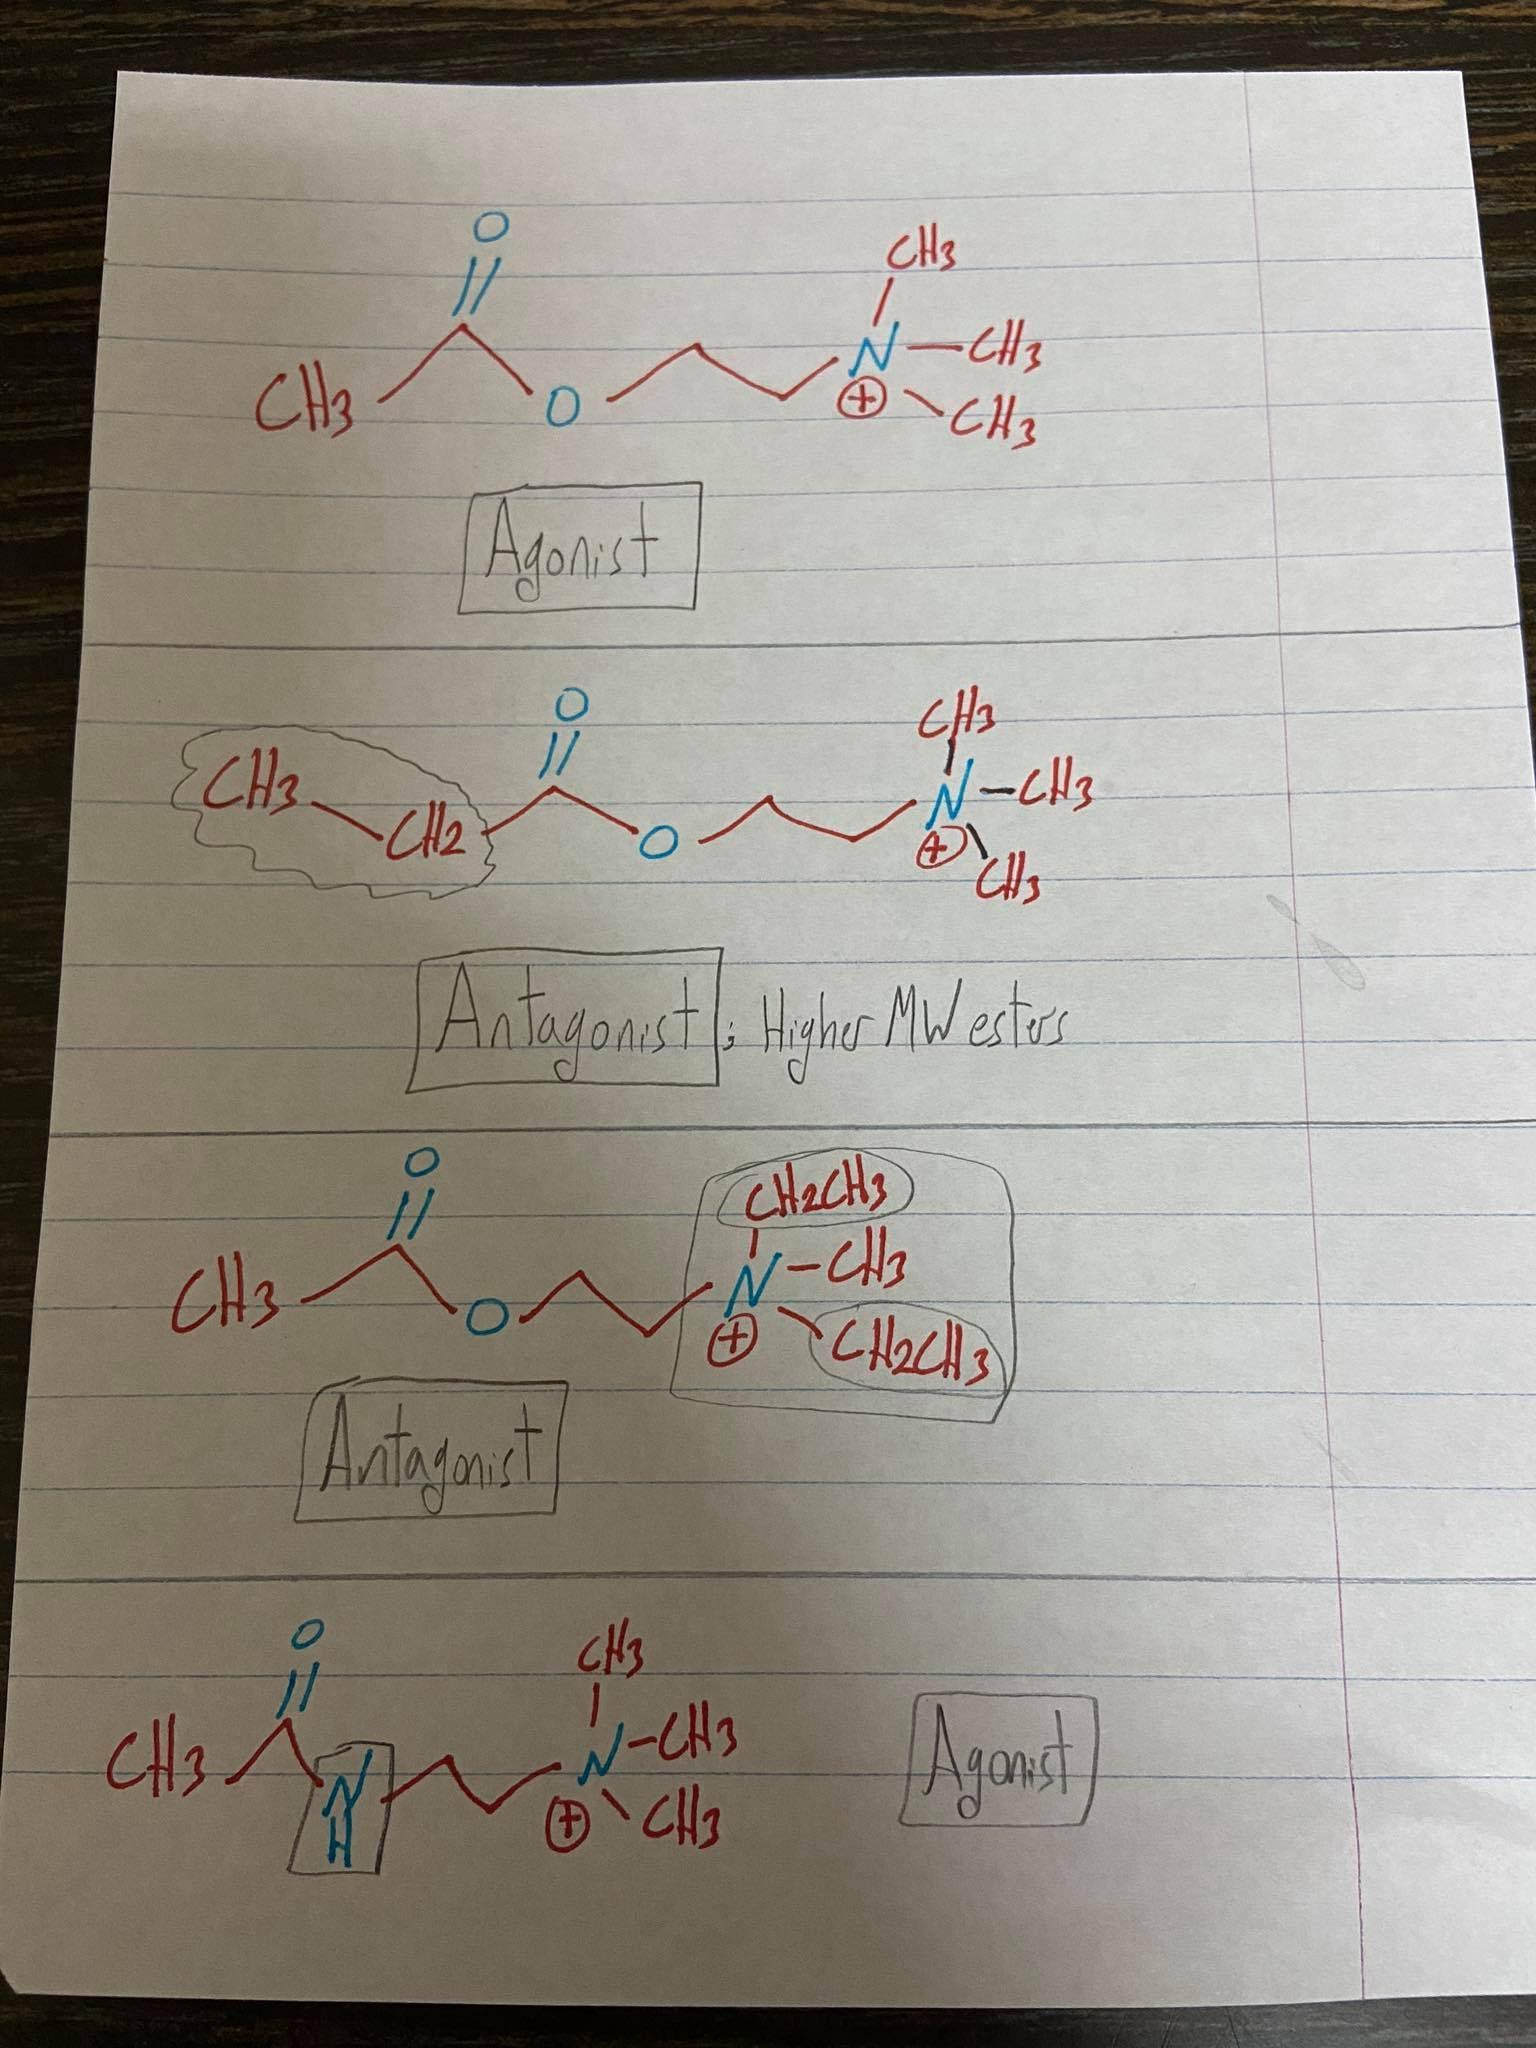 O
CH3
CH3 O N CH3
⊕ CH3
Agonist
O CH3
CH3 N CH3
CH2 O ⊕ CH3
Antagonist ; Higher MW esters
O CH2CH3
N CH3
CH3 O ⊕ CH2CH3
Antagonist
O CH3
CH3 N N CH3
H ⊕ CH3
Agonist